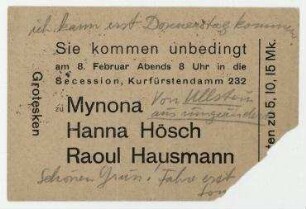 ich kann erst Donnerstag kommen
Sie kommen unbedingt
am 8. Februar Abends 8 Uhr in die
Secession, Kurfürstendamm 232
Grotesken
zu Mynona
Hanna Hösch
Raoul Hausmann
von Ullstein
aus
ten zu 5, 10, 15 Mk.
Schönen Gruss! Fahre erst